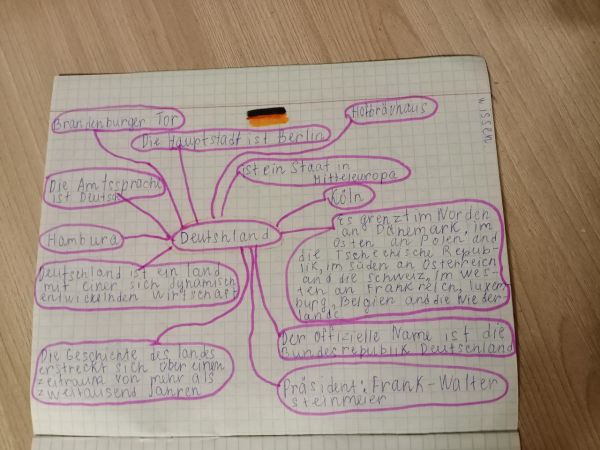 Brandenburger Tor
Hofbräuhaus
Die Hauptstadt ist Berlin
ist ein Staat in
Mitteleuropa
Die Amtssprache
ist Deutsch
Köln
Hamburg
Deutshland
es grenzt im Norden
an Dänemark, im
Osten an Polen and
die Tschechische Repub-
lik, im süden an Österreich
and die Schweiz, im Wes-
ten an Frankreich, luxem
burg, Belgien and die Nieder
lande
Deutschland ist ein land
mit einer sich dynamisch
entwickelnden wirtschaft
Der offizielle Name ist die
Bundesrepublik Deutschland
Die Geschichte des landes
erstreckt sich über einen
zeitraum von mehr als
zweitausend Jahren
Präsident: Frank-Walter
steinmeier